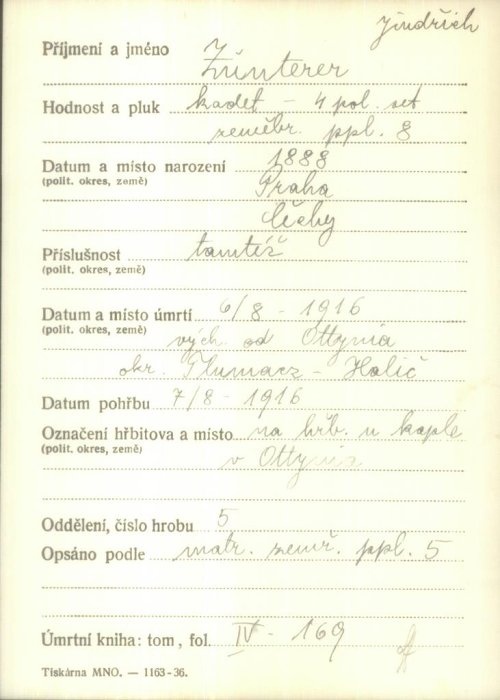 Jindřich
Příjmení a jméno Zünterer
Hodnost a pluk kadet – 4 pol. set
zeměbr. ppl. 8
Datum a místo narození 1888
(polit. okres, země) Praha
Čechy
Příslušnost tamtéž
(polit. okres, země)
Datum a místo úmrtí 6/8 - 1916
(polit. okres, země) vých. od Ottynia
okr. Tlumacz - Halič
Datum pohřbu 7/8 - 1916
Označení hřbitova a místo na hřb. u kaple
(polit. okres, země) v Ottynia
Oddělení, číslo hrobu 5
Opsáno podle matr. zemř. ppl. 5
Úmrtní kniha: tom, fol. IV - 169
Tiskárna MNO. — 1163-36.